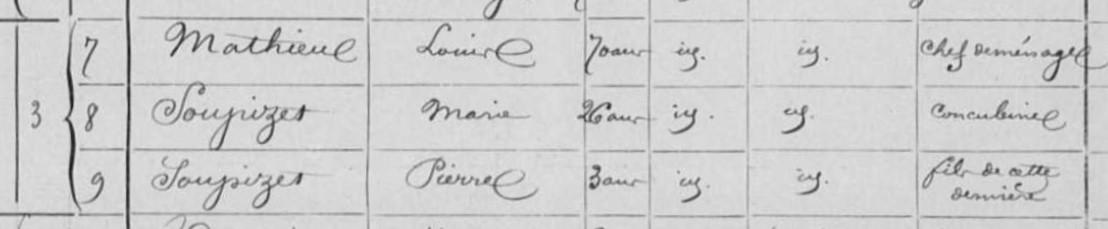 3 7 Mathieu Louis 70 ans id. id. chef de ménage
8 Soupizet Marie 26 ans id. id. concubine
9 Soupizet Pierre 3 ans id. id. fils de cette
dernière